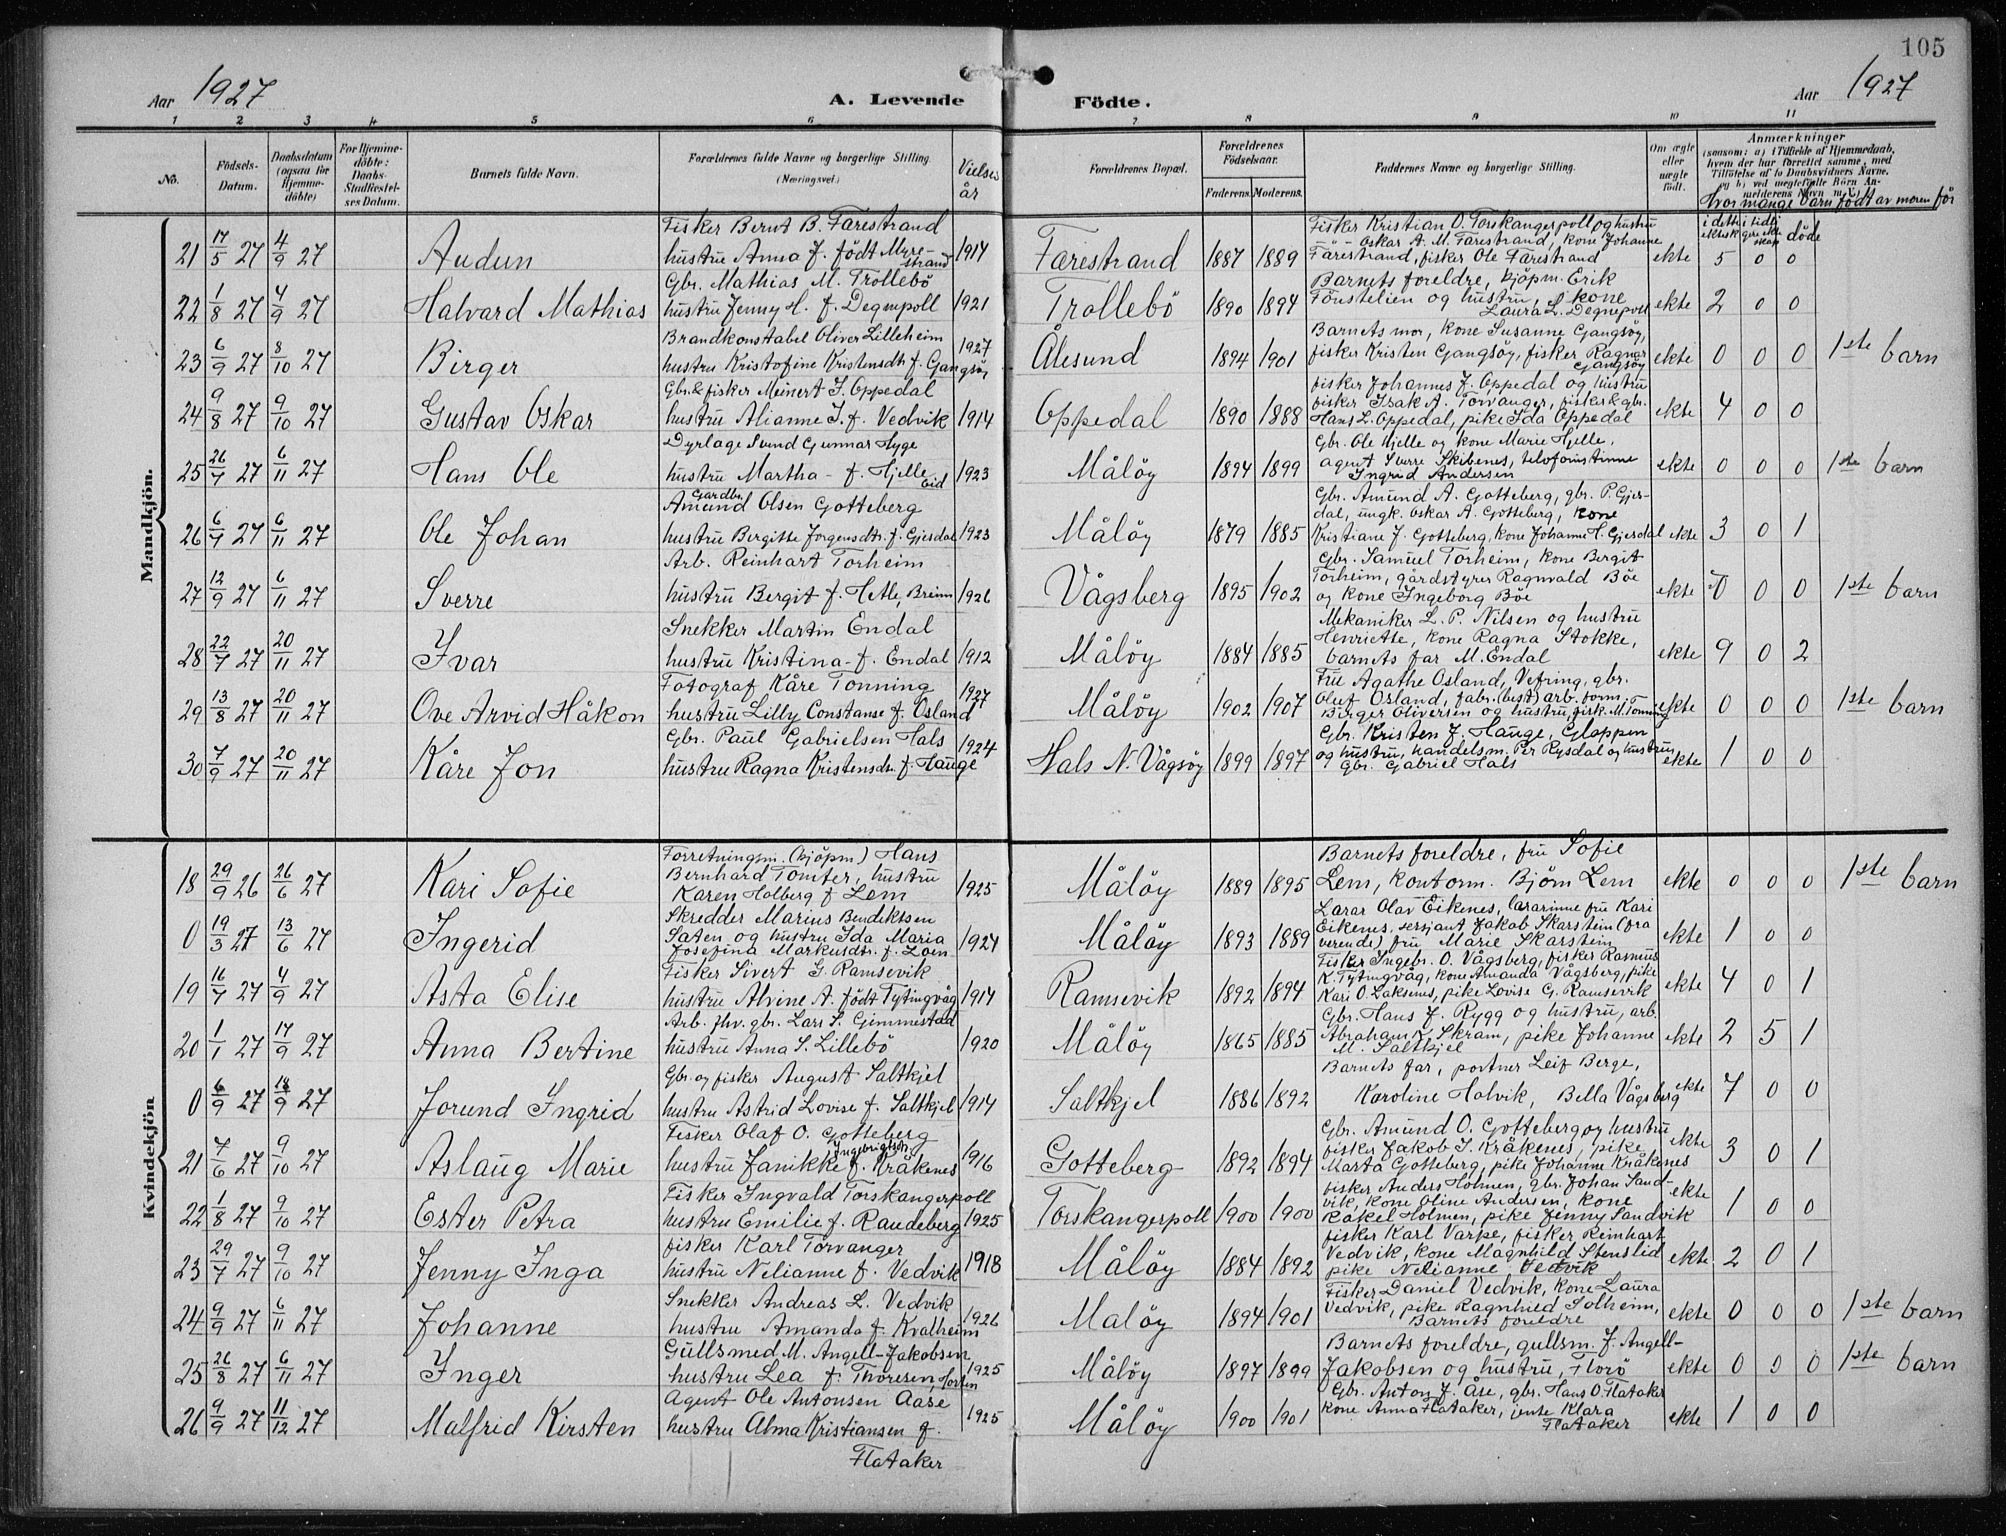 105
Aar 1927 A. Levende Födte. Aar 1927
1 2 3 4 5 6 7 8 9 10 11
No. Födsels-Datum. Daabsdatum (ogsaa for Hjemmedöbte) For Hjemmedöbte: Daabs-Stadfestelses Datum. Barnets fulde Navn. Forældrenes fulde Navne og borgerlige Stilling. (Næringsvei.) Vielsesår Forældrenes Bopæl. Forældrenes Födselsaar. Faderens. Moderens. Faddernes Navne og borgerlige Stilling. Om ægte eller uægte födt. Anmærkninger
(saasom: a) i Tilfælde af Hjemmedaab,
hvem der har forrettet samme, med
Tilföielse af to Daabsvidners Navne,
og b) ved uægtefödte Börn Anmelderens Navn m. V.)
Hvor mange barn född av moren för
i dette ektesk. i tidligere ekteskap döde
Mandkjön.
Fisker Bernt B. Färestrand
Fisker Kristian O. Torskangerpoll og hustru
21 17/5 27 4/9 27 Audun hustru Anna J. födt Myrestrand 1917 Färestrand 1887 1889 Oskar A. M. Färestrand, kone Johanne
Färestrand, fisker Ole Färestrand ekte 5 0 0
Gbr. Mathias M. Trollebö
Barnets foreldre, kjöpm. Erik
22 1/8 27 4/9 27 Halvard Mathias hustru Jenny H. f. Degnepoll 1921 Trollebö 1890 1894 Fönstelien og hustru, kone
Laura L. Degnepoll ekte 2 0 0
Brandkonstabel Oliver Lilleheim
Barnets mor, kone Susanne Gangsöy,
23 6/9 27 8/10 27 Birger hustru Kristofine Kristensdtr. f. Gangsöy 1927 Ålesund 1894 1901 fisker Kristen Gangsöy, fisker Ragnar
Gangsöy ekte 0 0 0 1ste barn
Gbr. & fisker Meinert J. Oppedal
fisker Johannes J. Oppedal og hustru
24 9/8 27 9/10 27 Gustav Oskar hustru Alianne J. f. Vedvik 1914 Oppedal 1890 1888 fisker Isak A. Torvanger, fisker & gbr.
Hans L. Oppedal, pike Ida Oppedal ekte 4 0 0
Dyrlæge Svend Gunnar Hyge
Gbr. Ole Hjelle og kone Marie Hjelle,
25 26/7 27 6/11 27 Hans Ole hustru Martha - f. Hjelle Eid 1923 Målöy 1894 1899 agent Sverre Skibenes, telefonistinne
Ingrid Andersen ekte 0 0 0 1ste barn
Gardbr.
Amund Olsen Gotteberg
Gbr. Amund A. Gotteberg, gbr. P. Gjesdal, ungk. Oskar A. Gotteberg, kone
26 6/7 27 6/11 27 Ole Johan hustru Bergitte Jorgensdtr. f. Gjesdal 1923 Målöy 1879 1885 Kristiane J. Gotteberg, kone Johanne H. Gjesdal ekte 3 0 1
Arb. Reinhart Torheim
Gbr. Samuel Torheim, kone Bergit
27 12/9 27 6/11 27 Sverre hustru Bergit f. Hetle, Breim 1926 Vågsberg 1895 1902 Torheim, gårdstyrer Ragnvald Böe
og kone Ingeborg Böe ekte 0 0 0 1ste barn
Snekker Martin Endal
Mekaniker L. P. Nilsen og hustru
28 22/7 27 20/11 27 Ivar hustru Kristina - f. Endal 1912 Målöy 1884 1885 Henriette, kone Ragna Stokke,
barnets far M. Endal ekte 9 0 2
Fotograf Kåre Tonning
Fru Agathe Osland, Vefring, gbr.
29 13/8 27 20/11 27 Ove Arvid Håkon hustru Lilly Constanse f. Osland 1927 Målöy 1902 1907 Oluf Osland, fabr. (best) arb. form.
Birger Oliversen og hustru, fisk. M. Tonning ekte 0 0 0 1ste barn
Gbr. Paul Gabrielsen Hals
Gbr. Kristen J. Hauge, Gloppen
30 7/9 27 20/11 27 Kåre Jon hustru Ragna Kristensdtr. f. Hauge 1924 Hals N. Vågsöy 1899 1897 og hustru, handelsm. Per Rysdal og hustru
Gbr. Gabriel Hals ekte 1 0 0
Kvindekjön
Forretningsm. (kjöpm) Hans
Barnets foreldre, fru Sofie
18 29/9 26 26/6 27 Kari Sofie Bernhard Tomter, hustru
Karen Holberg f. Lem 1925 Målöy 1889 1895 Lem, kontorm. Björn Lem ekte 0 0 0 1ste barn
Skredder Marius Bendiktsen
Lærar Olav Eikenes, lærarinne fru Kari
0 19/3 27 13/6 27 Ingerid Sæten og hustru Ida Maria
Josefina Markusdtr. f. Loen 1924 Målöy 1893 1889 Eikenes, sersjant Jakob Skarstein (fra
verende) fru Marie Skarstein ekte 1 0 0
Fisker Sivert G. Ramsevik
Fisker Ingebr. O. Vågsberg, fisker Rasmus
19 16/7 27 4/9 27 Asta Elise hustru Alvine A. födt Tytingvåg 1917 Ramsevik 1892 1894 K. Tytingvåg, kone Amanda Vågsberg, pike
Kari O. Laksenes, pike Lovise G. Ramsevik ekte 4 0 1
Arb. fhv. gbr. Lars S. Gimmestad
Gbr. Hans J. Rygg og hustru, arb.
20 1/1 27 17/9 27 Anna Bertine hustru Anna S. Lillebö 1920 Målöy 1865 1885 Abraham K. Skram, pike Johanne
M. Saltkjel ekte 2 5 1
Gbr. og fisker August Saltkjel
Barnets far, portner Leif Berge,
0 6/9 27 18/9 27 Jorund Ingrid hustru Astrid Lovise f. Saltkjel 1914 Saltkjel 1886 1892 Karoline Halvik, Bella Vågsberg ekte 7 0 0
Fisker Olaf O. Gotteberg
Gbr. Amund O. Gotteberg og hustru
21 7/6 27 9/10 27 Aslaug Marie hustru Janikke Ingebrigtsdtr. f. Kråkenes 1916 Gotteberg 1892 1894 fisker Jakob I. Kråkenes, pike
Marta Gotteberg, pike Johanne Kråkenes ekte 3 0 1
Fisker Ingvald Torskangerpoll
fisker Anders Holmen, gbr. Johan Sandvik, kone Oline Andersen, kone
22 1/8 27 9/10 27 Ester Petra hustru Emilie f. Raudeberg 1925 Torskangerpoll 1900 1900 Rakel Holmen, pike Jenny Sandvik ekte 1 0 0
fisker Karl Torvanger
fisker Karl Varpe, fisker Reinhart
23 29/7 27 9/10 27 Jenny Inga hustru Nelianne f. Vedvik 1918 Målöy 1884 1892 Vedvik, kone Magnhild Stenslid
pike Nelianne Vedvik ekte 2 0 1
Snekker Andreas L. Vedvik
Fisker Daniel Vedvik, kone Laura
24 9/9 27 6/11 27 Johanne hustru Amanda f. Kvalheim 1926 Målöy 1894 1901 Vedvik, pike Ragnhild Solheim,
Barnets foreldre ekte 0 0 0 1ste barn
Gullsmed M. Angell-Jakobsen
Barnets foreldre, gullsm. J. Angell-
25 26/8 27 6/11 27 Inger hustru Lea f. Thoresen, Horten 1925 Målöy 1897 1899 Jakobsen og hustru, Florö ekte 0 0 0 1ste barn
Agent Ole Antonsen Aase
Gbr. Anton J. Åse, gbr. Hans O. Flataker
26 9/9 27 11/12 27 Malfrid Kirsten hustru Alma Kristiansen f.
Flataker 1925 Målöy 1900 1901 kone Anna Flataker, jente Klara
Flataker ekte 1 0 0